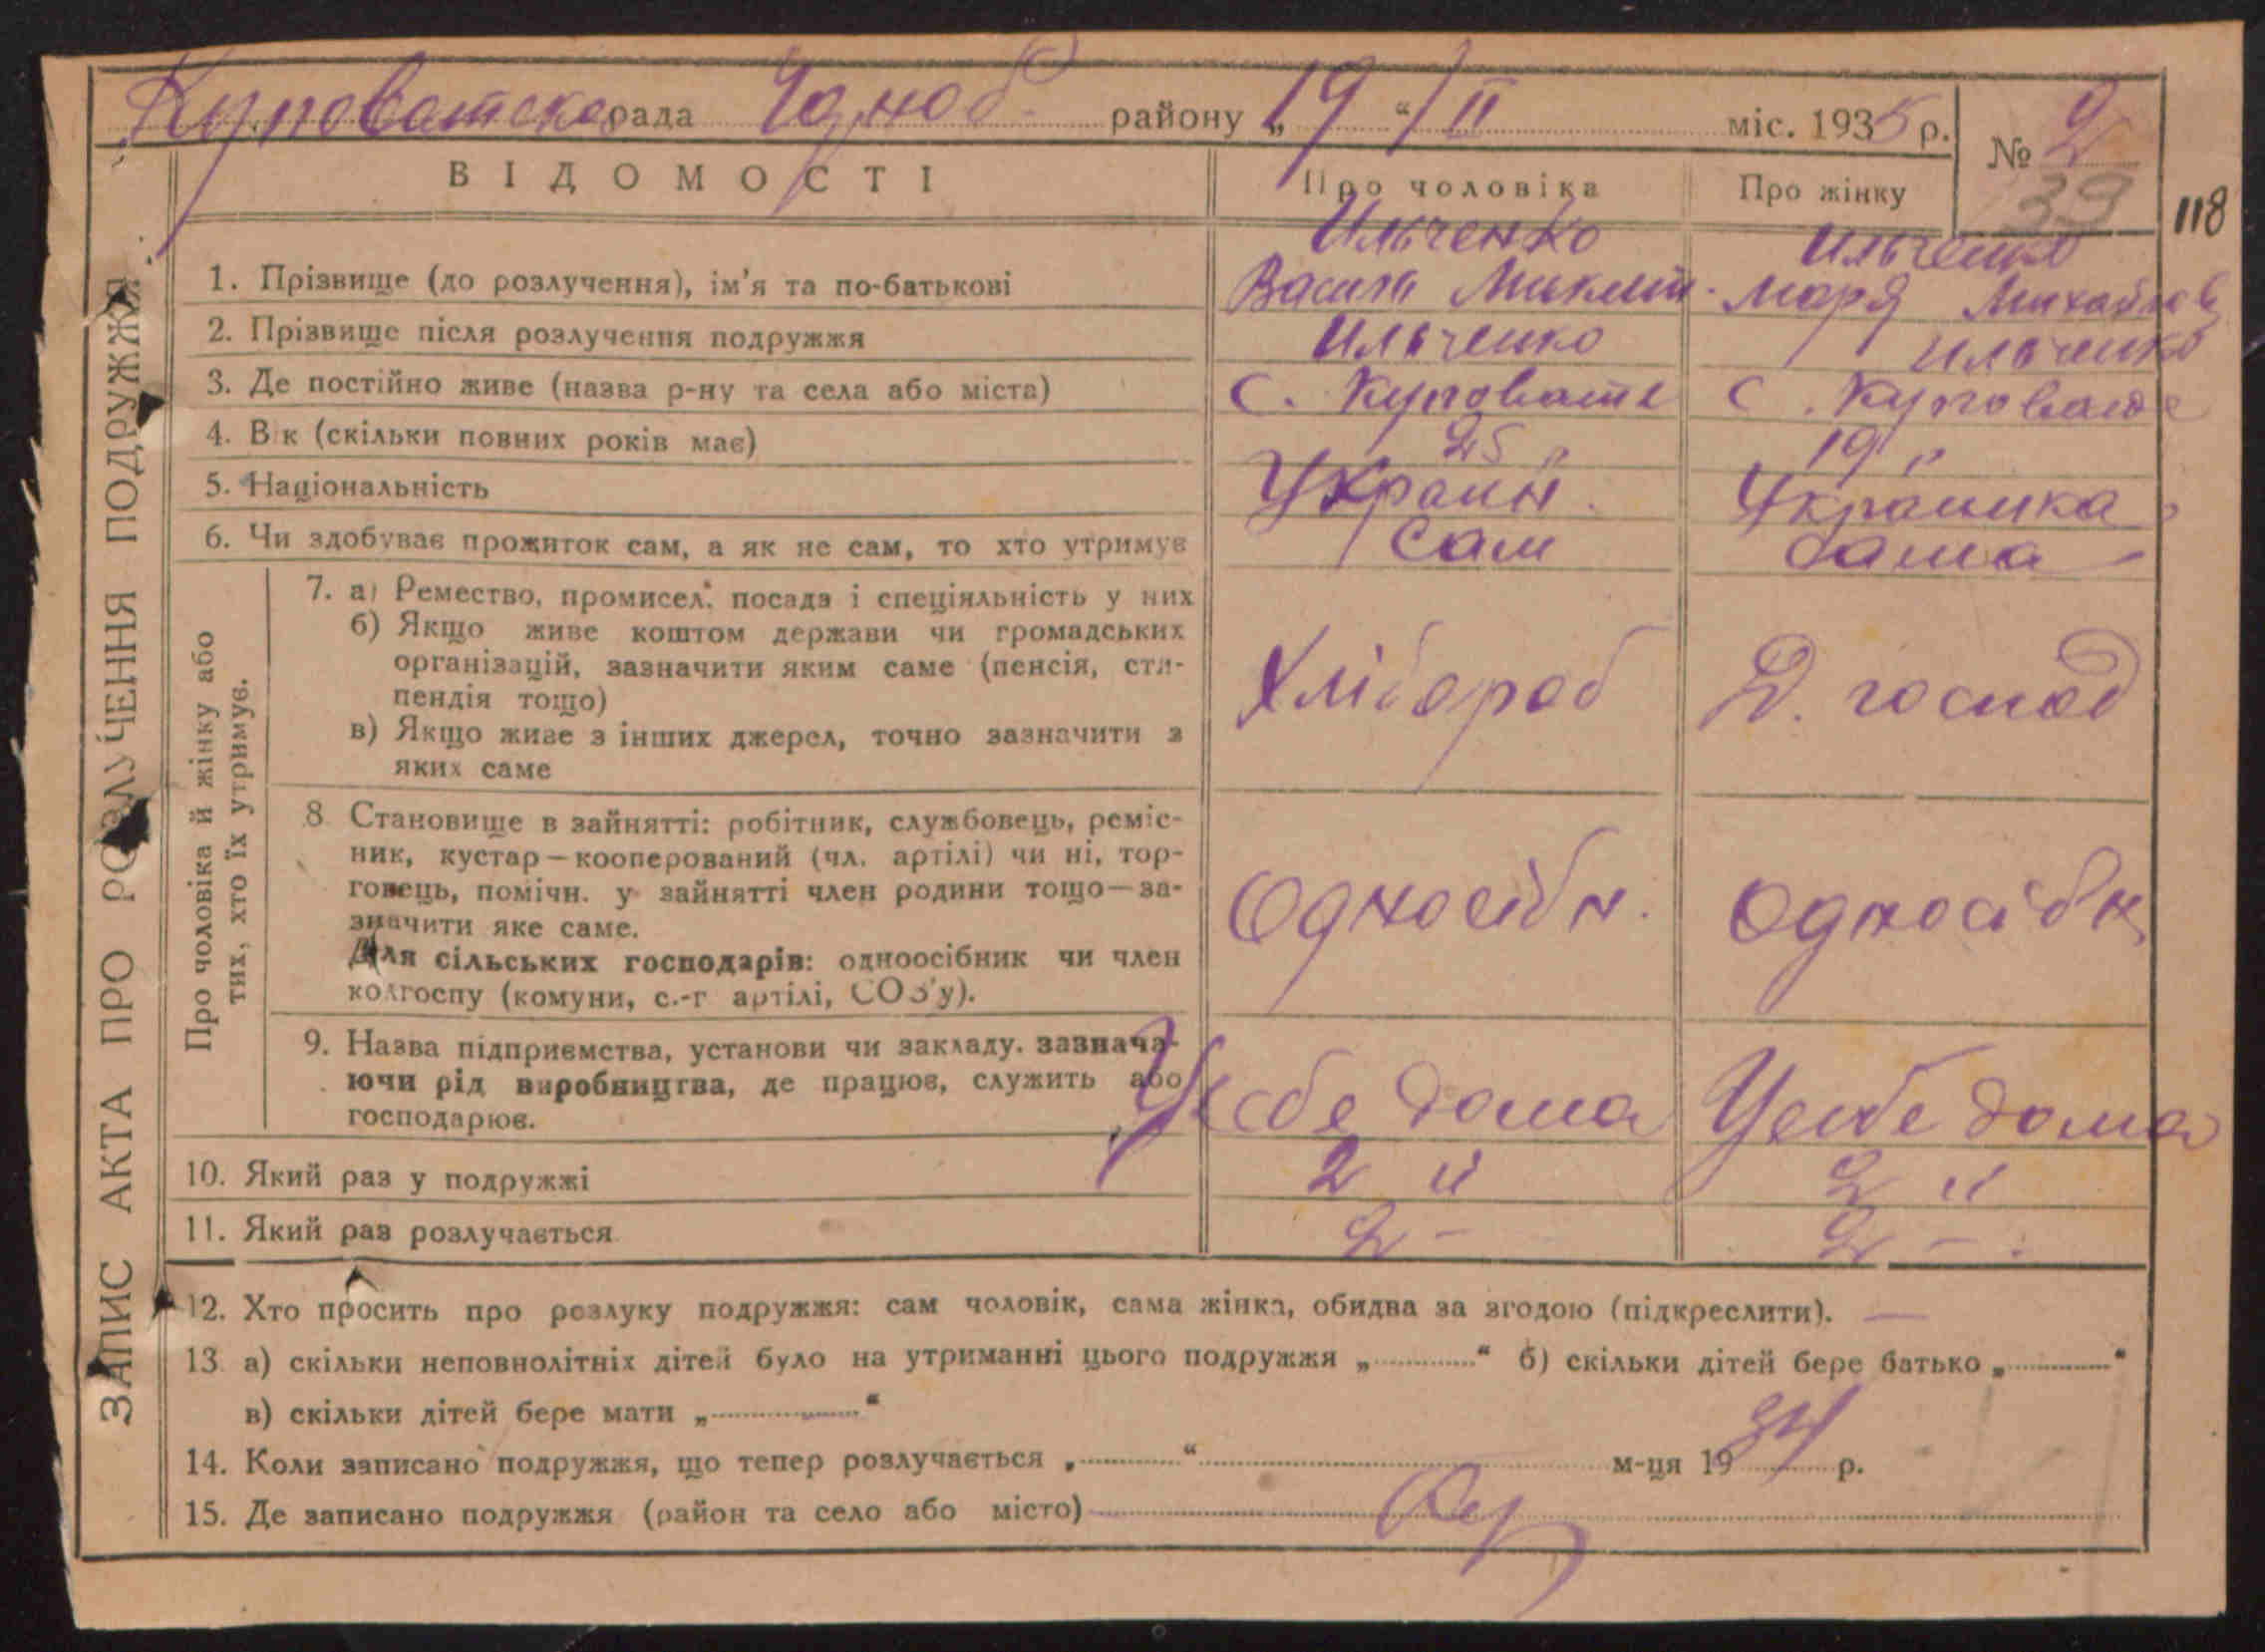 Куповатская рада Чорноб. району „19“ II міс. 1935 р.
№ 2
39
118
ВІДОМОСТІ Про чоловіка Про жінку
ЗАПИС АКТА ПРО РОЗЛУЧЕННЯ ПОДРУЖЖЯ
Ильченко Ильченко
1. Прізвище (до розлучення), ім'я та по-батькові Василь Микит. Маря Михайлов
2. Прізвище після розлучення подружжя Ильченко Ильченко
3. Де постійно живе (назва р-ну та села або міста) С. Куповате С. Куповате
4. Вік (скільки повних років має) 25 „ 19 „
5. Національність Украин. Украинка
6. Чи здобуває прожиток сам, а як не сам, то хто утримує Сам Сама
Про чоловіка й жінку або
тих, хто їх утримує.
7. а) Ремество, промисел, посада і спеціяльність у них
б) Якщо живе коштом держави чи громадських
організацій, зазначити яким саме (пенсія, сти-
пендія тощо)
Хлібороб Д. господ
в) Якщо живе з інших джерел, точно зазначити з
яких саме
8 Становище в зайнятті: робітник, службовець, реміс-
ник, кустар—кооперований (чл. артілі) чи ні, тор-
говець, помічн. у зайнятті член родини тощо—за-
значити яке саме.
Односібн. Односібн
Для сільських господарів: одноосібник чи член
колгоспу (комуни, с.-г артілі, СОЗ'у).
9. Назва підприємства, установи чи закладу, зазнача-
ючи рід виробництва, де працює, служить або
господарює.
Усебе дома Усебе дома
10. Який раз у подружжі 2 „ 2 „
11. Який раз розлучається 2 - 2 - .
12. Хто просить про розлуку подружжя: сам чоловік, сама жінка, обидва за згодою (підкреслити). —
13. а) скільки неповнолітніх дітей було на утриманні цього подружжя „............“ б) скільки дітей бере батько „............“
в) скільки дітей бере мати „............“
14. Коли записано подружжя, що тепер розлучається „............“ ............ м-ця 1934 р.
15. Де записано подружжя (район та село або місто)